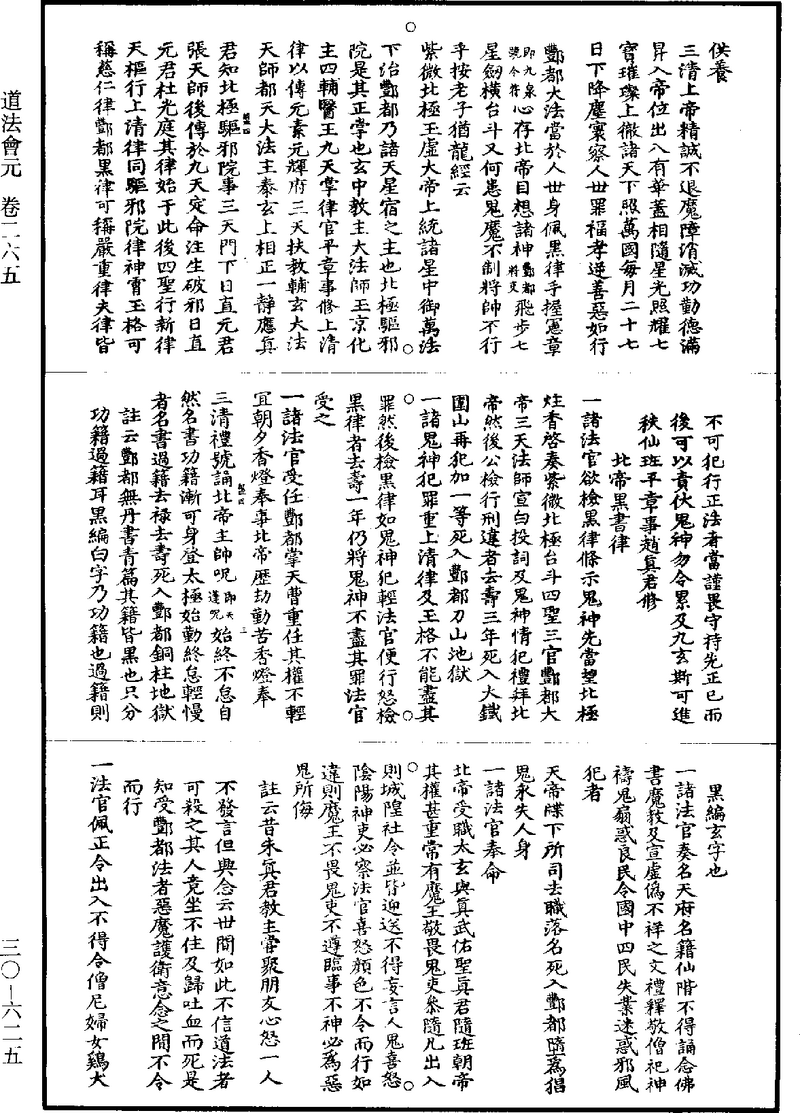 道法會元　卷二六五
三〇—六二五
供養
三清上帝精誠不退魔障消滅功勤德滿
昇入帝位出入有華蓋相隨星光照耀七
寶璀璨上徹諸天下照萬國每月二十七
日下降塵寰察人世罪福孝逆善惡如行
酆都大法當於人世身佩黑律手握憲章
即九泉號令符心存北帝目想諸神酆都將吏飛步七
星劒橫台斗又何患鬼魔不制將帥不行
乎按老子猶龍經云
紫微北極玉虛大帝上統諸星中御萬法
下治酆都乃諸天星宿之主也北極驅邪
院是其正掌也玄中教主大法師玉京化
主四輔醫王九天掌律官平章事修上清
律以傳元素元輝府三天扶教輔玄大法
天師都天大法主泰玄上相正一靜應真
君知北極驅邪院事三天門下日直元君
張天師後傳於九天定命注生破邪日直
元君杜光庭其律始于此後四聖行新律
天樞行上清律同驅邪院律神霄玉格可
稱慈仁律酆都黑律可稱嚴重律夫律皆
不可犯行正法者當謹畏守持先正己而
後可以責伏鬼神勿令累及九玄斯可進
秩仙班平章事趙真君修
北帝黑書律
一諸法官欲檢黑律條示鬼神先當望北極
炷香啓奏紫微北極台斗四聖三官酆都大
帝三天法師宣白投詞及鬼神情犯禮拜北
帝然後公檢行刑違者去壽三年死入大鐵
圍山再犯加一等死入酆都刀山地獄
一諸鬼神犯罪重上清律及玉格不能盡其
罪然後檢黑律如鬼神犯輕法官便行怒檢
黑律者去壽一年仍將鬼神不盡其罪法官
受之
一諸法官受任酆都掌天曹重任其權不輕
宜朝夕香燈奉事北帝歷劫勤苦香燈奉
三清禮號誦北帝主帥呪即天蓬咒始終不怠自
然名書功籍漸可身登太極始勤終怠輕慢
者名書過籍去祿去壽死入酆都銅柱地獄
註云酆都無丹書青篇其籍皆黑也只分
功籍過籍耳黑編白字乃功籍也過籍則
黑編玄字也
一諸法官奏名天府名籍仙階不得誦念佛
書魔教及宣虛僞不祥之文禮釋敬僧祀神
禱鬼扇惑良民令國中四民失業迷惑邪風
犯者
天帝牒下所司去職落名死入酆都隨爲猖
鬼永失人身
一諸法官奉命
北帝受職太玄與真武佑聖真君隨班朝帝
其權甚重常有魔王敬畏鬼吏參隨凡出入
則城隍社令並皆迎送不得妄言人鬼喜怒
陰陽神吏必察法官喜怒顏色不令而行如
違則魔王不畏鬼吏不遵臨事不神必爲惡
鬼所侮
註云昔朱真君教主嘗聚朋友心怒一人
不發言但興念云世間如此不信道法者
可殺之其人竟坐不住及歸吐血而死是
知受酆都法者惡魔護衛意念之間不令
而行
一法官佩正令出入不得令僧尼婦女鷄犬